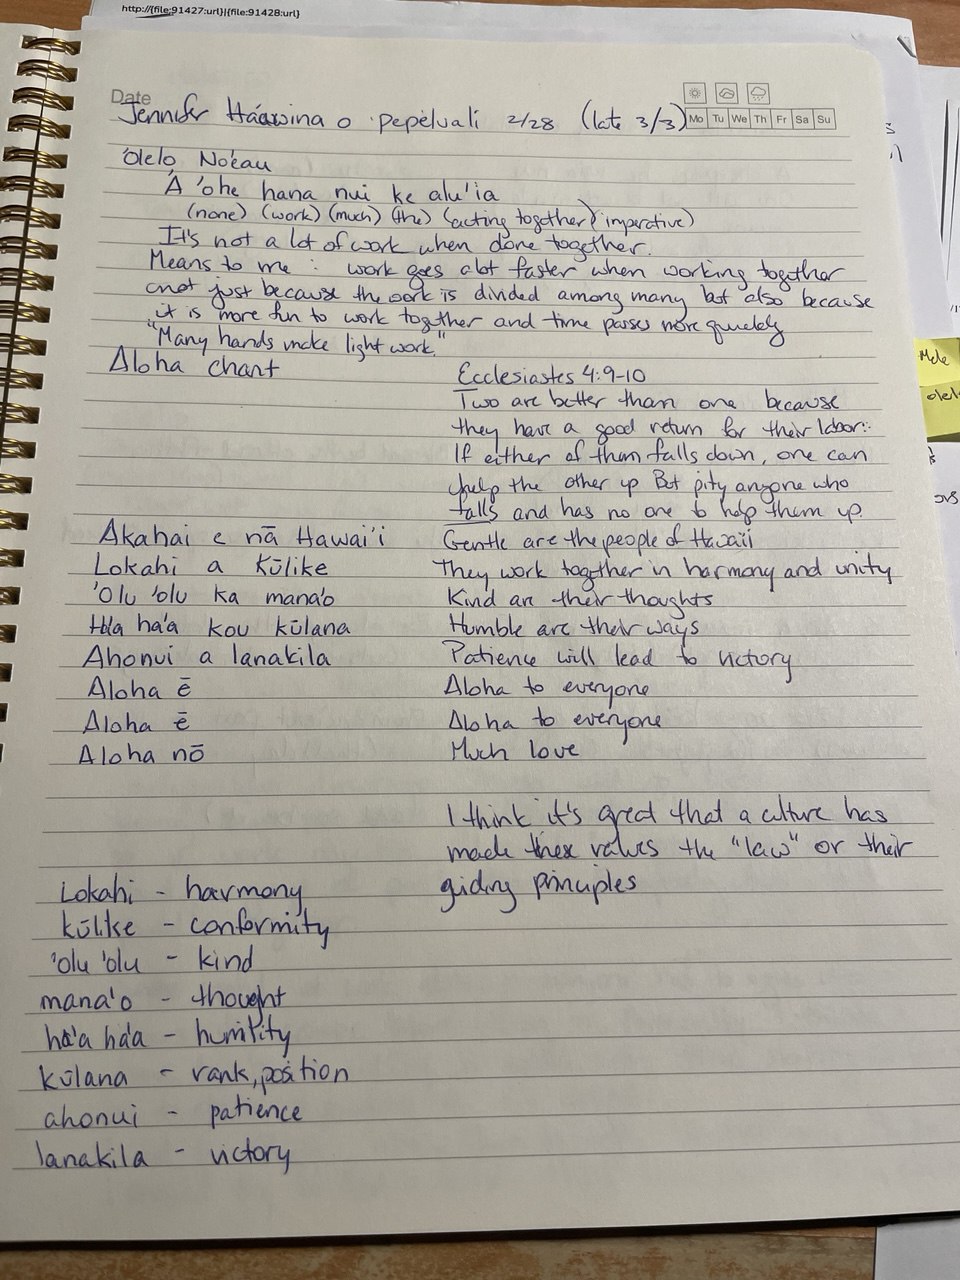 http://{file:91427:url}|{file:91428:url}
Date
Mo Tu We Th Fr Sa Su
Jennifer Háawina o pepeluali 2/28 (late 3/3)
'Olelo No'eau
A 'ohe hana nui ke alu'ia
(none) (work) (much) (the) (acting together) (imperative)
It's not a lot of work when done together.
Means to me : work goes a lot faster when working together
and not just because the work is divided among many but also because
it is more fun to work together and time passes more quickly
"Many hands make light work."
Aloha chant
Ecclesiastes 4:9-10
Two are better than one because
they have a good return for their labor:
If either of them falls down, one can
help the other up But pity anyone who
falls and has no one to help them up.
Akahai e nā Hawai'i Gentle are the people of Hawaii
Lokahi a Kūlike They work together in harmony and unity
'Olu 'olu ka mana'o Kind are their thoughts
Ha'a ha'a kou kūlana Humble are their ways
Ahonui a lanakila Patience will lead to victory
Aloha ē Aloha to everyone
Aloha ē Aloha to everyone
Aloha nō Much love
I think it's great that a culture has
made these values the "law" or their
guiding principles
Lokahi - harmony
kūlike - conformity
'olu 'olu - kind
mana'o - thought
ha'a ha'a - humility
kūlana - rank, position
ahonui - patience
lanakila - victory
Mele